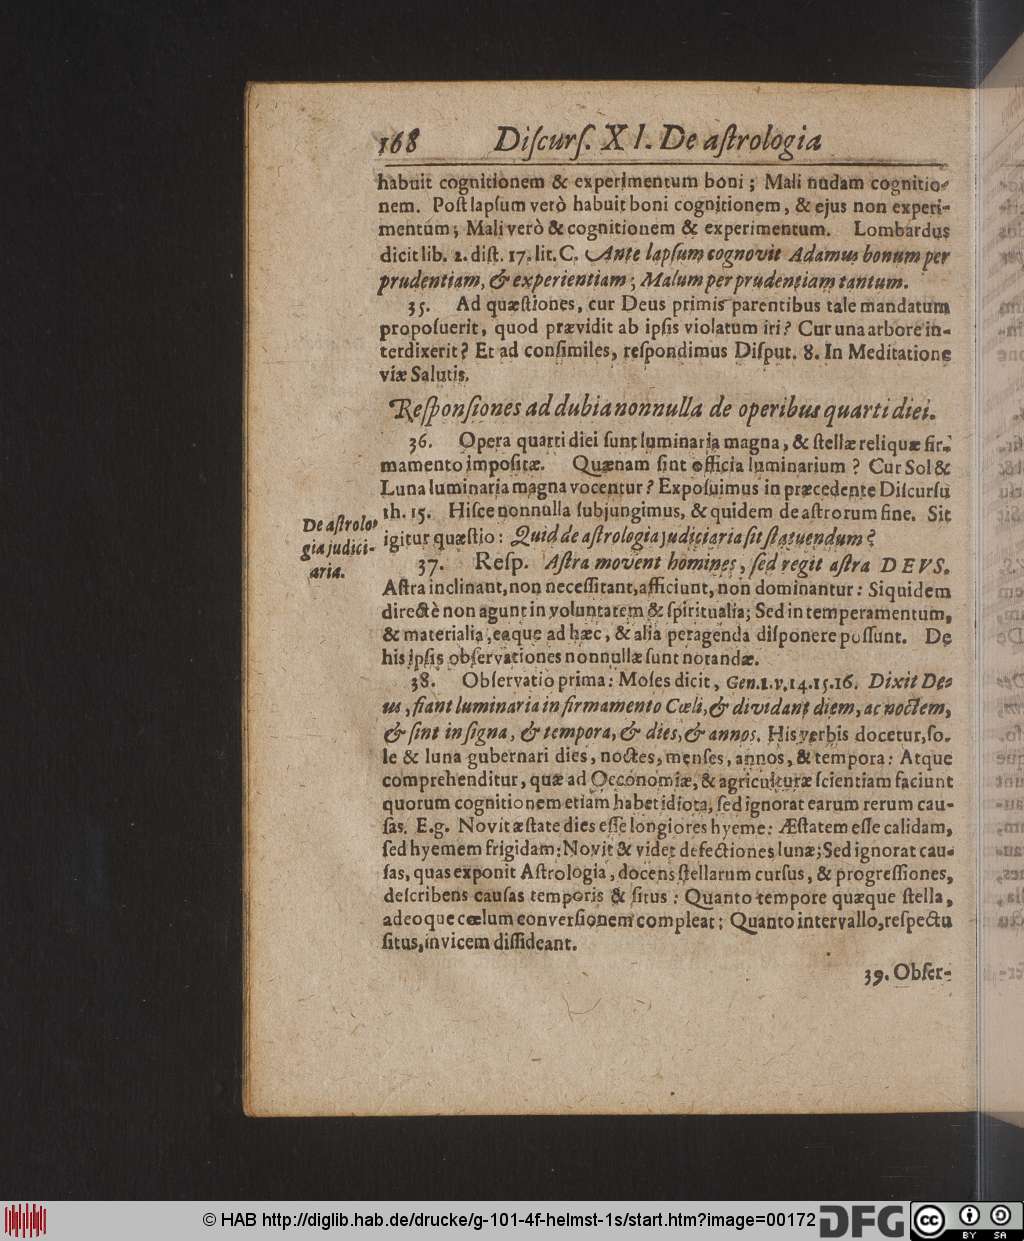 168 Diſcurſ. XI. De aſtrologia
habuit cognitionem & experimentum boni; Mali nudam cognitio-
nem. Poſt lapſum verò habuit boni cognitionem, & ejus non experi-
mentum; Mali verò & cognitionem & experimentum. Lombardus
dicit lib. 2. diſt. 17. lit. C. Ante lapſum cognovit Adamus bonum per
prudentiam, & experientiam; Malum per prudentiam tantum.
35. Ad quæſtiones, cur Deus primis parentibus tale mandatum
propoſuerit, quod prævidit ab ipſis violatum iri? Cur una arbore in-
terdixerit? Et ad conſimiles, reſpondimus Diſput. 8. In Meditatione
viæ Salutis.
Reſponſiones ad dubia nonnulla de operibus quarti diei.
36. Opera quarti diei ſunt luminaria magna, & ſtellæ reliquæ fir-
mamento impoſitæ. Quænam ſint officia luminarium? Cur Sol &
Luna luminaria magna vocentur? Expoſuimus in præcedente Diſcurſu
th. 15. Hiſce nonnulla ſubjungimus, & quidem de aſtrorum fine. Sit
igitur quæſtio: Quid de aſtrologia judiciaria ſit ſtatuendum?
De aſtrolo-
gia judici-
aria.
37. Reſp. Aſtra movent homines, ſed regit aſtra DEVS.
Aſtra inclinant, non neceſſitant, afficiunt, non dominantur: Siquidem
directè non agunt in voluntatem & ſpiritualia; Sed in temperamentum,
& materialia, eaque ad hæc, & alia peragenda diſponere poſſunt. De
his ipſis obſervationes nonnullæ ſunt notandæ.
38. Obſervatio prima: Moſes dicit, Gen. 1. v. 14. 15. 16. Dixit De-
us, fiant luminaria in firmamento Cœli, & dividant diem, ac noctem,
& ſint in ſigna, & tempora, & dies, & annos. His verbis docetur, ſo-
le & luna gubernari dies, noctes, menſes, annos, & tempora: Atque
comprehenditur, quæ ad Oeconomiæ, & agriculturæ ſcientiam faciunt
quorum cognitionem etiam habet idiota, ſed ignorat earum rerum cau-
ſas. E.g. Novit æſtate dies eſſe longiores hyeme: Æſtatem eſſe calidam,
ſed hyemem frigidam: Novit & videt defectiones lunæ; Sed ignorat cau-
ſas, quas exponit Aſtrologia, docens ſtellarum curſus, & progreſſiones,
deſcribens cauſas temporis & ſitus: Quanto tempore quæque ſtella,
adeoque cœlum converſionem compleat; Quanto intervallo, reſpectu
ſitus, invicem diſſideant.
39. Obſer-
© HAB http://diglib.hab.de/drucke/g-101-4f-helmst-1s/start.htm?image=00172
DFG
cc BY SA